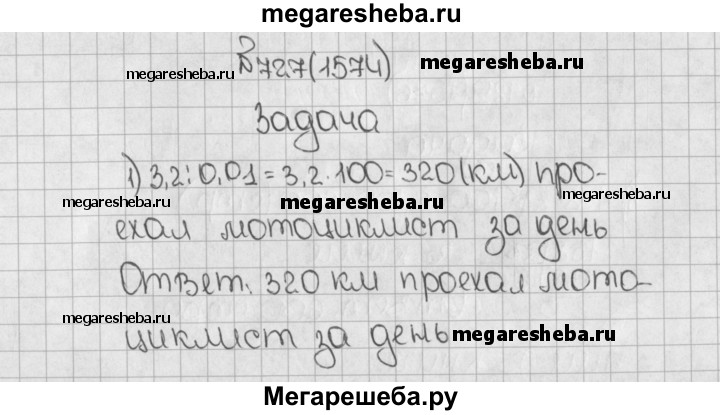 megaresheba.ru
№727(1574)
megaresheba.ru
megaresheba.ru
Задача
1) 3,2:0,01=3,2·100=320(км) про-
megaresheba.ru
megaresheba.ru
megaresheba.ru
ехал мотоциклист за день
Ответ: 320 км проехал мото-
megaresheba.ru
megaresheba.ru
циклист за день
Мегарешеба.ру